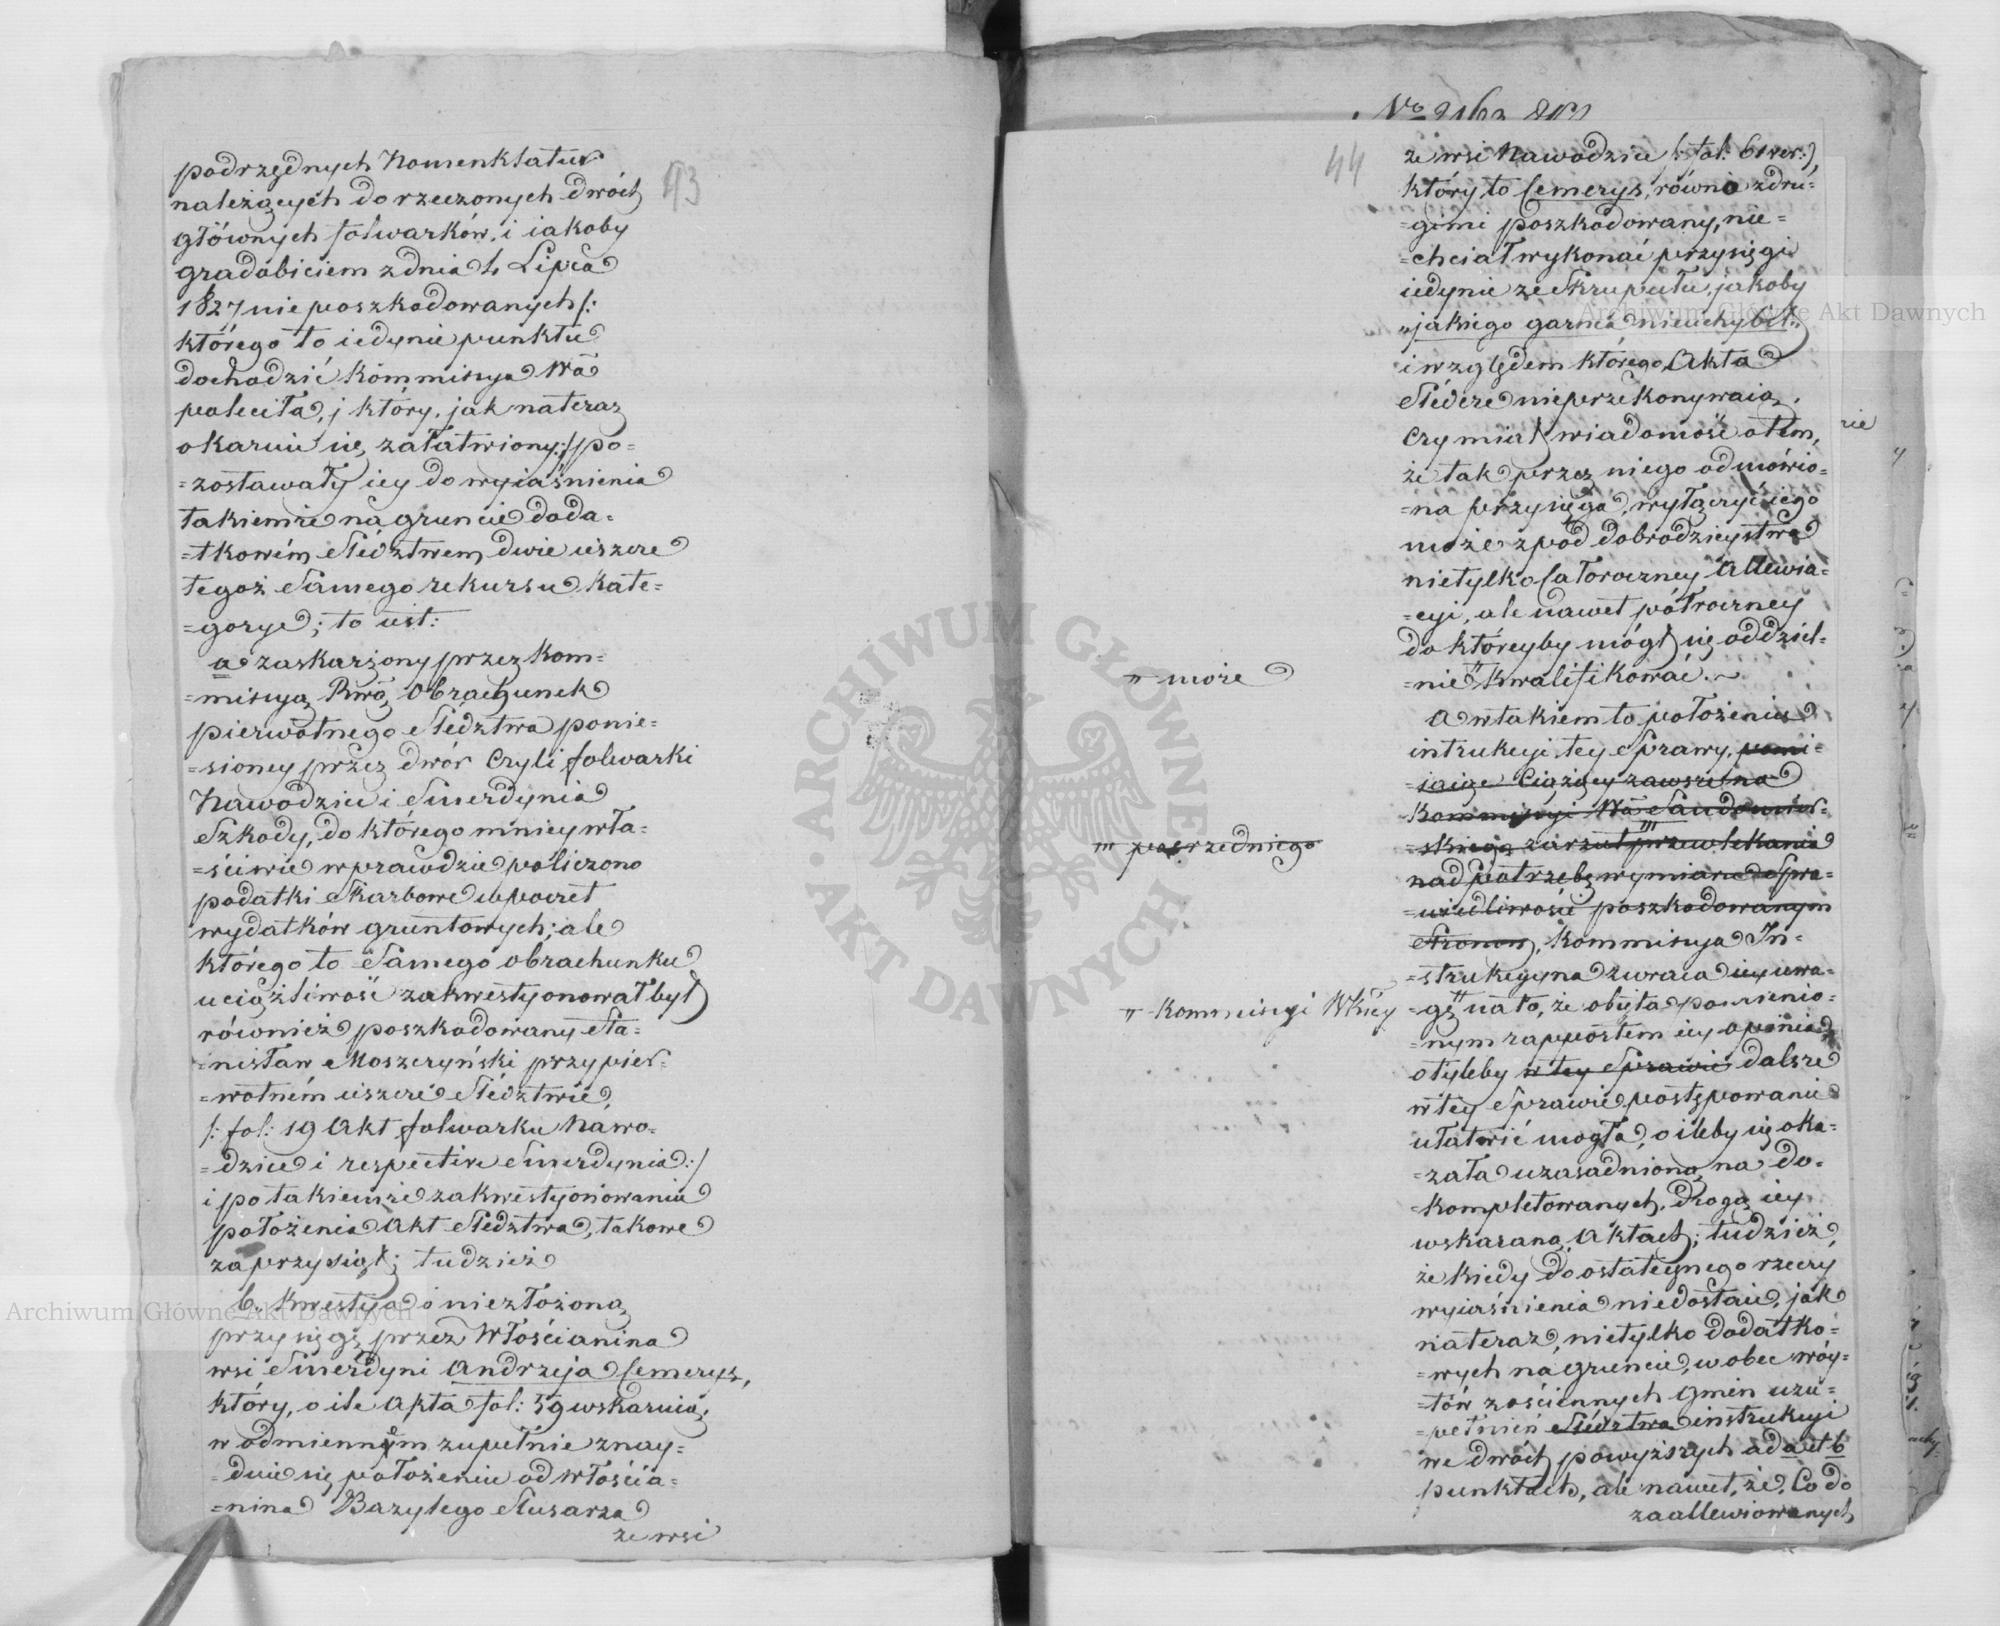 podrzędnych Nomenklatur
należących do rzeczonych dwóch
głównych folwarków, i iakoby
gradobiciem z dnia 4 Lipca
1827 nie poszkodowanych /:
którego to iedynie punktu
dochodzić Kommissya Wa
poleciła, i który, jak nateraz
okazuie się, załatwiony:/ po-
=zostawały iey do wyiaśnienia
takiemże na gruncie doda-
=tkowém Śledztwem, dwie ieszcze
tegoż Samego rekursu Kate-
=gorye; to iest:
a. zaskarżony przez Kom-
=missyą Rwą, Obrachunek
pierwotnego Śledztwa ponie-
=sioney przez dwór czyli folwarki
Nawodzice i Smerdynia
Szkody, do którego mniey wła-
=ściwie wprawdzie policzono
podatki Skarbowe w poczet
wydatków gruntowych; ale
którego to Samego obrachunku
uciążliwość zakwestyonował był
również poszkodowany Sta-
=nisław Moszczyński przy pier-
=wotném ieszcze Śledztwie,
/: fol: 19 Akt folwarku Nawo-
=dzice i respective Smerdynia:/
i po takiemże zakwestyonowaniu
położenia Akt Śledztwa, takowe
zaprzysiągł; tudzież
b. Kwestya o niezłożoną
przysięgę przez Włościanina
wsi Smerdyni Andrzeja Cemerys,
który, o ile Akta fol: 59 wskazuią,
w odmienném zupełnie znay-
=duie się położeniu od Włościa-
=nina Bazylego Slusarza
ze wsi
43
44
No 2162
ze wsi Nawodzice /: fol: 61 ver:/,
który to Cemerys, równie z dru-
=gimi poszkodowany, nie-
=chciał wykonać przysięgi
iedynie ze Skrupułu, jakoby
„jakiego garnca nieuchybił„
i względem którego, Akta
Śledcze nieprzekonywaią,
czy miał wiadomość o tém,
że tak przez niego odmówio-
=na przysięga, wyłączyć iego
może z pod dobrodzieystwa
nietylko Całoroczney Allewia-
=cyi, ale nawet półroczney
do któreyby mógł się oddziel-
=nie " kwalifikować.
" może
A w takiem to położeniu
intrukcyi tey Sprawy, pomi-
=iaiąc Ciążący zawsze na
Kommissyi Wa Sandomier-
=skiego zarzut ''' przewlekania
''' pośrzedniego
nad potrzebę wymiaru Spra-
=wiedliwości poszkodowanym
Stronom, Kommissya In-
=strukcyjna zwraca iey uwa-
=gę " na to, że obięta pomienio-
" Kommissyi Wkiey
=nym rapportem iey opinia,
otyleby w tey Sprawie dalsze
w tey Sprawie postępowanie
ułatwić mogła, o ileby się oka-
=zała uzasadnioną na do-
=kompletowanych, drogą iey
wskazaną, Aktach; tudzież,
że kiedy do ostatecznego rzeczy
wyiaśnienia niedostaie, jak
nateraz, nietylko dodatko-
=wych na gruncie, wobec wóy-
=tów zościennych Gmin uzu-
=pełnień Śledztwa instrukcyi
we dwóch powyższych ad a et b
punktach, ale nawet, że, Co do
zaallewiowanych
nie
Archiwum Główne Akt Dawnych
Archiwum Główne Akt Dawnych
ARCHIWUM GŁÓWNE AKT DAWNYCH